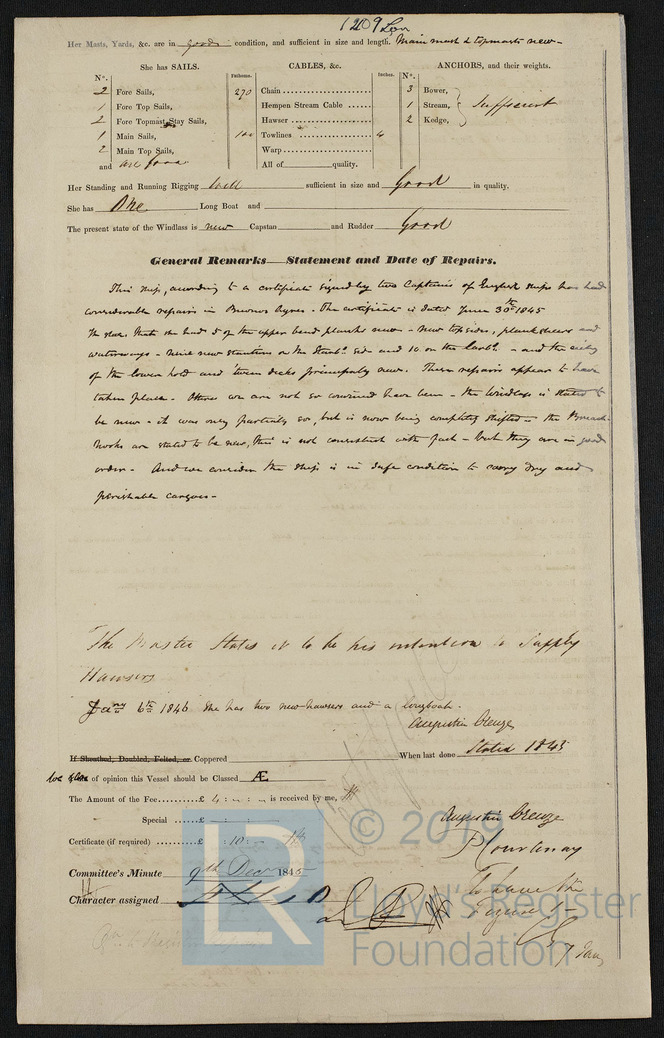 1209 Lon
Her Masts, Yards, &c. are in good condition, and sufficient in size and length. Main mast & topmasts new -
She has SAILS. CABLES, &c. ANCHORS, and their weights.
No. Fathoms. Inches. No.
2 Fore Sails, 270 Chain 3 Bower,
1 Fore Top Sails, Hempen Stream Cable 1 Stream, Sufficient
2 Fore Topmast Stay Sails, Hawser 2 Kedge,
1 Main Sails, 100 Towlines 4
2 Main Top Sails, Warp
and are good All of quality.
Her Standing and Running Rigging Well sufficient in size and Good in quality.
She has One Long Boat and
The present state of the Windlass is new Capstan and Rudder Good
General Remarks—Statement and Date of Repairs.
This ship, according to a certificate signed by two Captains of English ships has had
considerable repairs in Buenos Ayres. The certificate is dated June 30th 1845
that she had 5 of the upper bend planks new - New topsides, plansheers and
waterways - Nine new stantions on the Starbd. side and 10 on the Larbd. - and the
of the lower hold and 'tween decks principally new. These repairs appear to have
taken place. Others we are not so convinced have been - the Windlass is stated to
be new - it was only partially so, but is now being completely shifted - the Breast
hooks are stated to be new, this is not consistent with fact - but they are in good
order - And we consider the ship is in safe condition to carry dry and
perishable cargoes -
The Master States it to be his intention to Supply
Hawsers
Jany 6th 1846 She has two new hawsers and a longboat.
Augustin Creuze
If Sheathed, Doubled, Felted, or Coppered When last done Stated 1845
We are of opinion this Vessel should be Classed Æ
The Amount of the Fee £ 4 : - : - is received by me,
Special £ : :
Certificate (if required) £ : 10 : -
Augustin Creuze
P Courtenay
Committee's Minute 9th Decr 1845
Character assigned
7 Jany
© 2019
LR
Lloyd's Register
Foundation